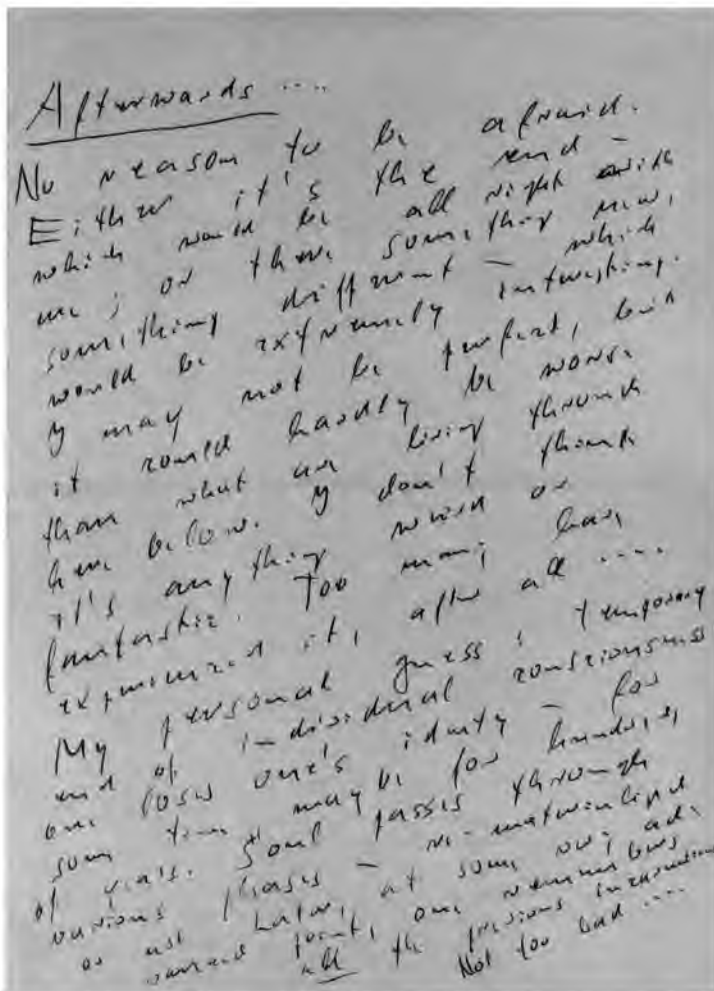 Afterwards ....
No reason to be afraid.
Either it's the end –
which would be all right with
me; or there something new,
something different – which
would be extremely interesting.
It may not be perfect, but
it could hardly be worse
than what we living through
here below. I don't think
it's anything weird or
fantastic. Too many have
experienced it, after all ....
My personal guess: temporary
end of individual consciousness
one loses one's identity – for
some time may be for hundreds
of years. Soul passes through
various phases – re-materialized
or not. Later, at some very ad-
vanced point, one remembers
all the previous incarnations
Not too bad ....